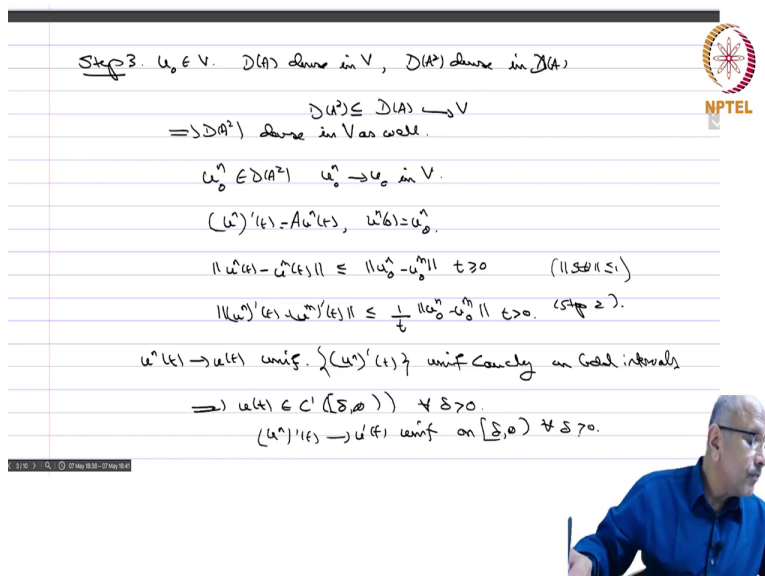 Step 3. u₀ ∈ V. D(A) dense in V, D(A²) dense in D(A)
D(A²) ⊆ D(A) ↪ V
⟹ D(A²) dense in V as well.
u₀ⁿ ∈ D(A²) u₀ⁿ → u₀ in V.
(uⁿ)'(t) = Auⁿ(t), uⁿ(0) = u₀ⁿ.
‖uⁿ(t) - uᵐ(t)‖ ≤ ‖u₀ⁿ - u₀ᵐ‖ t ≥ 0 (‖S(t)‖ ≤ 1)
‖(uⁿ)'(t) - (uᵐ)'(t)‖ ≤ 1/t ‖u₀ⁿ - u₀ᵐ‖ t > 0. (Step 2).
uⁿ(t) → u(t) unif. {(uⁿ)'(t)} unif Cauchy on bdd intervals
⟹ u(t) ∈ C'([δ,∞)) ∀ δ > 0.
(uⁿ)'(t) → u'(t) unif on [δ,∞) ∀ δ > 0.
NPTEL
3 / 10 07 May 18:38 - 07 May 18:41